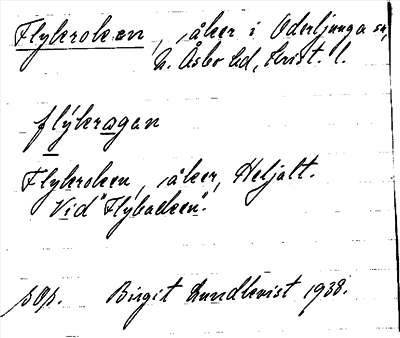 Flykroken, åker i Oderljunga sn,
N. Åsbo hd, Krist. l.
flýkragan
Flykroken, åker, Heljalt.
Vid "Flybacken".
sOp. Birgit Lundkvist 1938.